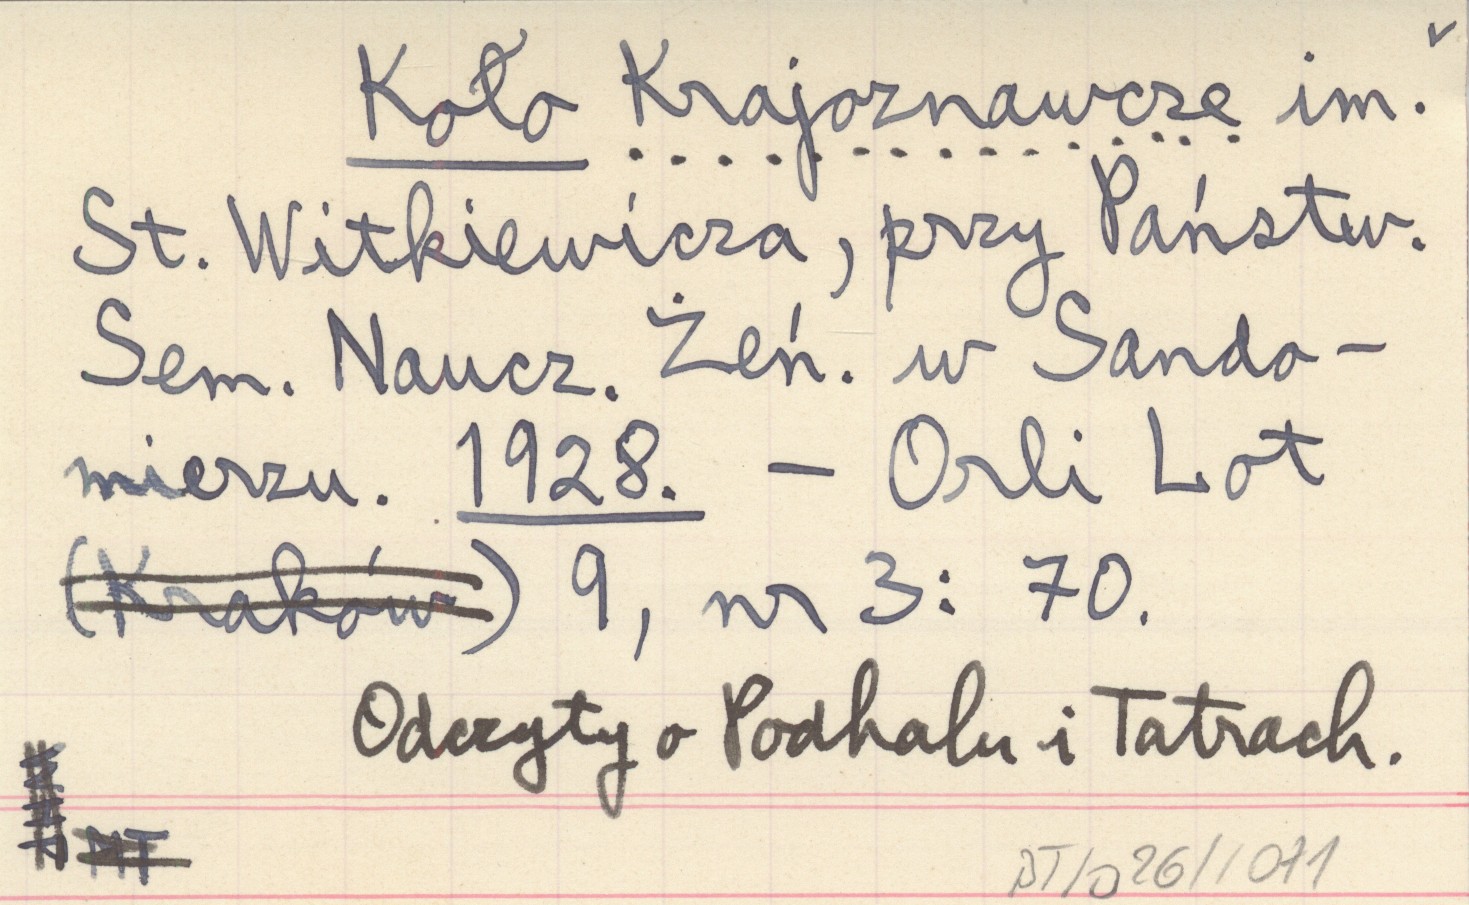 Koło Krajoznawcze im.
St. Witkiewicza, przy Państw.
Sem. Naucz. Żeń. w Sando-
mierzu. 1928. – Orli Lot
(Kraków) 9, nr 3: 70.
Odczyty o Podhalu i Tatrach.
MT